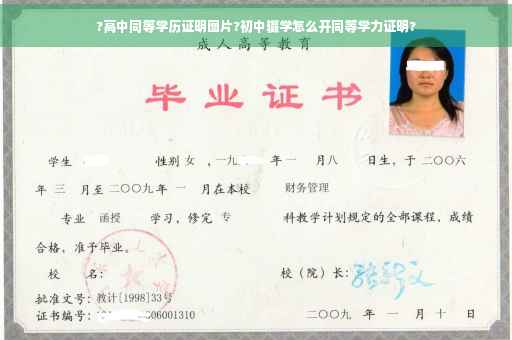 ?高中同等学历证明图片?初中辍学怎么开同等学力证明?
成人高等教育
毕业证书
学生 性别 女 ，一九 年 一 月八 日生，于 二〇〇六
年 三 月至 二〇〇九 年 一 月在本校 财务管理
专业 函授 学习，修完 专 科教学计划规定的全部课程，成绩
合格，准予毕业。
校 名： 校（院）长：
批准文号：教计[1998]33号
证书编号： 06001310 二〇〇九 年 一 月 十 日